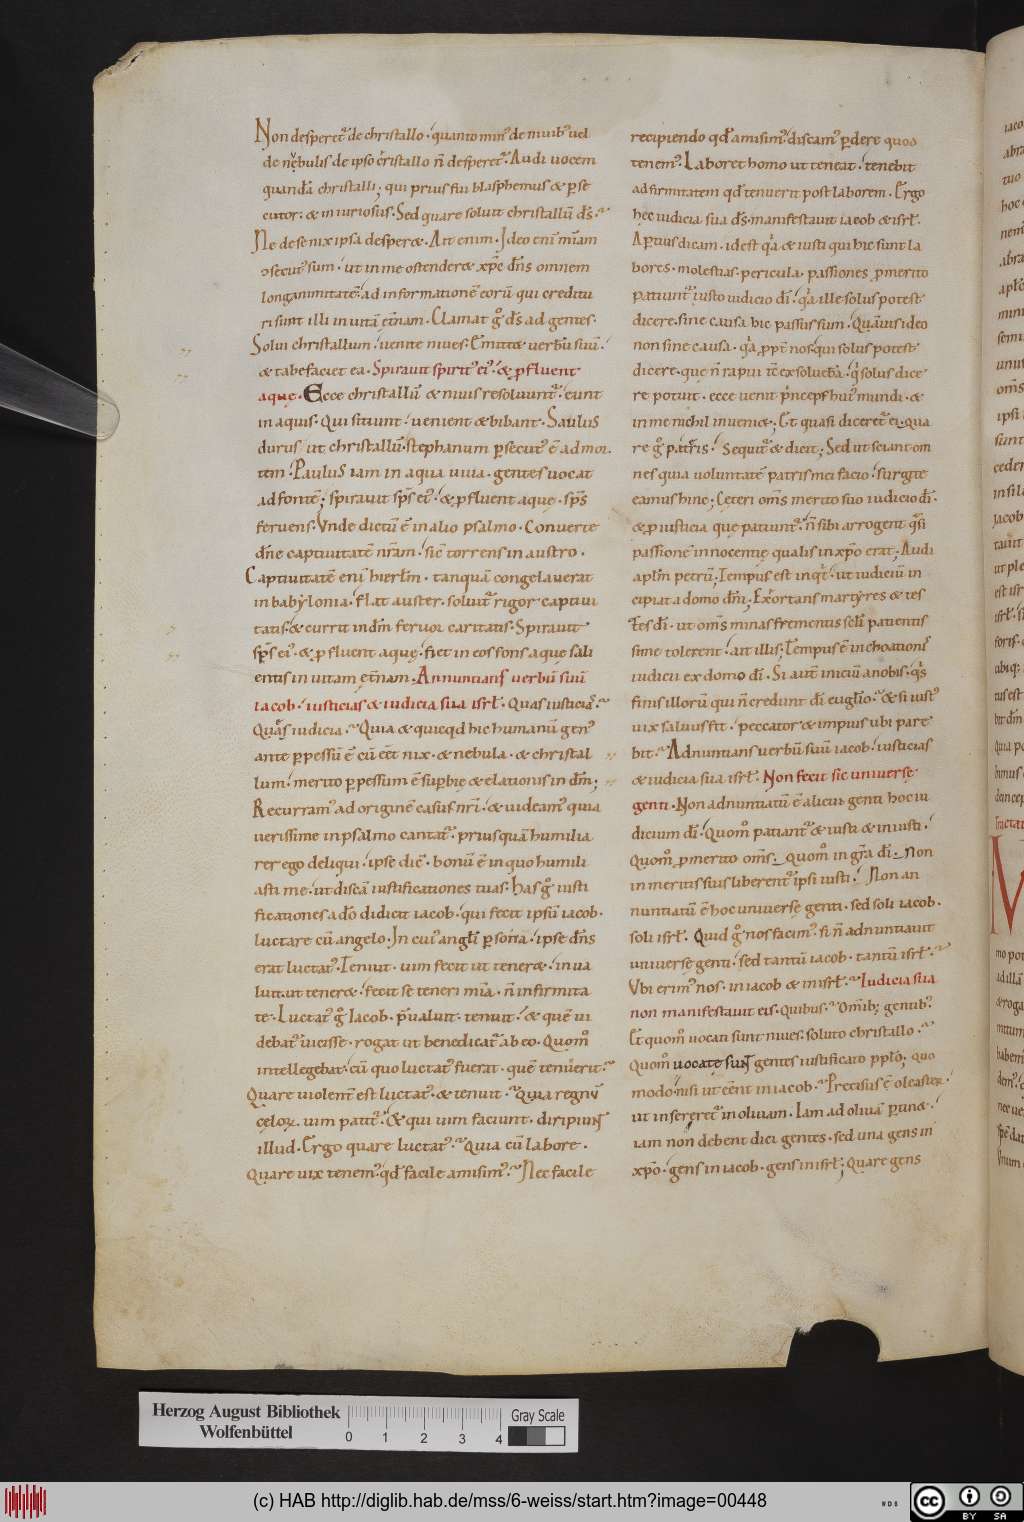 Non desperet᷑ de christallo · quanto min᷒ de niuib᷒ uel
de nębulis · de ipso cristallo n̄ desperet᷑ · Audi uocem
quandā christalli; qui prius fui blasphemus & p̱se
cutor · & iniuriosus · Sed quare soluit christallū ds̄ ·
Ne de se nix ipsa desper& · Ait enim · Ideo eni᷒ miam̄
ↄsecut᷒ sum · ut in me ostender& xpc̄ ihs̄ omnem
longanimitatē · ad informationē eorū qui creditu
ri sunt illi in uitā et̄nam · Clamat g̊ ds̄ ad gentes ·
Solui christallum · uenite niues · Emitt& uerbū suū ·
& tabefaciet ea · Spirauit spirit᷒ ei᷒ · & p̱fluent
aquę · Ecce christallū & niuis resoluunt᷑ · eunt
in aquis · Qui sitiunt · uenient & bibant · Saulus
durus ut christallū · stephanum p̱secut᷒ ē ad mor
tem · Paulus iam in aqua uiua · gentes uocat
ad fontē; spirauit sps̄ ei᷒ · & p̱fluent aquę · sps̄
feruens · Unde dictū ē in alio psalmo · Conuerte
dn̄e captiuitatē nr̄am · sic̄ torrens in austro ·
Captiuitatē eni᷒ hierłm · tanquā congelauerat
in babylonia · flat auster · soluit᷑ rigor captiui
tatis · & currit in dm̄ feruor caritatis · Spirauit
sps̄ ei᷒ · & p̱fluent aquę · fiet in eos fons aquę sali
entis in uitam et̄nam · Annuntians uerbū suū
iacob · iusticias & iudicia sua isrł · Quas iusticias ·
Quas iudicia · Quia & quicqd̄ hic humanū gen᷒
ante p̱pessū ē cū eēt nix · & nebula · & christal
lum · merito p̱pessum ē sup̱bię & elationis in dm̄;
Recurram᷒ ad originē casus nr̄i · & uideam᷒ quia
uerissime in psalmo cantat᷑ · priusquā humilia
rer ego deliqui · ipse dic̄ · bonū ē in quo humili
asti me · ut discā iustificationes tuas · has g̊ iusti
ficationes a dō didicit iacob · qui fecit ipsū iacob ·
luctare cū angelo · In cui᷒ angli p̱sona · ipse dn̄s
erat luctat᷒ · Tenuit · uim fecit ut tener& · in ua
luit · ut tener& · fecit se teneri mīa · n̄ infirmita
te · Luctat᷒ g̊ Iacob · p̄ualuit · tenuit · & quē ui
debat᷑ uicisse · rogat ut benedicat᷑ ab eo · Quom̊
intellegebat · cū quo luctat᷒ fuerat · quē tenuerit ·
Quare uiolent᷒ est luctat᷒ · & tenuit · Quia regnū
cęlor̄ uim patit᷑ · & qui uim faciunt · diripiunt
illud · Ergo quare luctat᷒ · Quia cū labore ·
Quare uix tenem᷒ · qd̄ facile amisim᷒ · Nec facile
recipiendo qd̄ amisim᷒ · discam᷒ p̱dere quod
tenem᷒ · Labor& homo ut teneat · tenebit
ad firmitatem qd̄ tenuerit post laborem · Ergo
hęc iudicia sua ds̄ · manifestauit iacob & isrł ·
Aptius dicam · id est qa᷒ & iusti qui hic sunt la
bores · molestias · pericula · passiones p̱ merito
patiunt᷑ · iusto iudicio dī · qa᷒ ille solus potest
dicere · sine causa hic passus sum · Quāuis ideo
non sine causa · qa᷒ ppt̄ nos · qui solus potest
dicere · quę n̄ rapui tc̄ exsoluebā · qi᷒ solus dice
re potuit · ecce uenit p̄nceps hui᷒ mundi · &
in me nichil inueni&; Et quasi diceret᷑ ei · qua
re g̊ pateris · Sequit᷑ & dicit; Sed ut sciant om
nes quia uoluntatē patris mei facio · surgite
eamus hinc; Cęteri om̄s merito suo iudicio dī ·
& p̱ iusticia quę patiunt᷑ · n̄ sibi arrogent qs̄i
passionē innocentię qualis in xp̄o erat; Audi
aplm̄ petrū; Tempus est inqt̄ · ut iudiciū in
cipiat a domo dn̄i; Exortans martyres & tes
tes dī · ut om̄s minas frementis scłi patientis
sime tolerent · ait illis; Tempus ē inchoationis
iudicii ex domo dī · Si aut̄ iniciū a nobis · qis
finis illorū qui n̄ credunt dī euglio · & si iust᷒
uix saluus fit · peccator & impius ubi pare
bit · Adnuntians uerbū suū iacob · iusticias
& iudicia sua isrł · Non fecit sic uniuersę
genti · Non adnuntiatū ē alicui genti hoc iu
dicium dī · Quom̊ patiant᷑ & iusti & iniusti ·
Quom̊ p̱ merito om̄s · Quom̊ in gr̄a dī · Non
in meritis suis liberent᷑ ipsi iusti · Non an
nuntiatū ē hoc uniuersę genti · sed soli iacob ·
soli isrł · Quid g̊ nos facim᷒ · si n̄ adnuntiauit
uniuersę genti · sed tantū iacob · tantū isrł ·
Ubi erim᷒ nos · in iacob & in isrł · Iudicia sua
non manifestauit eis · Quibus · Omīb; gentib᷒ ·
Et quom̊ uocati sunt niues · soluto christallo ·
Quom̊ uocatę sunt gentes iustificato pplō; quo
modo · nisi ut eēnt in iacob · Precisus ē oleaster ·
ut insereret᷑ in oliuam · Iam ad oliuā p̱tinet ·
iam non debent dici gentes · sed una gens in
xp̄o · gens in iacob · gens in isrł; Quare gens
Herzog August Bibliothek
Wolfenbüttel
Gray Scale
0 1 2 3 4
(c) HAB http://diglib.hab.de/mss/6-weiss/start.htm?image=00448
BY SA